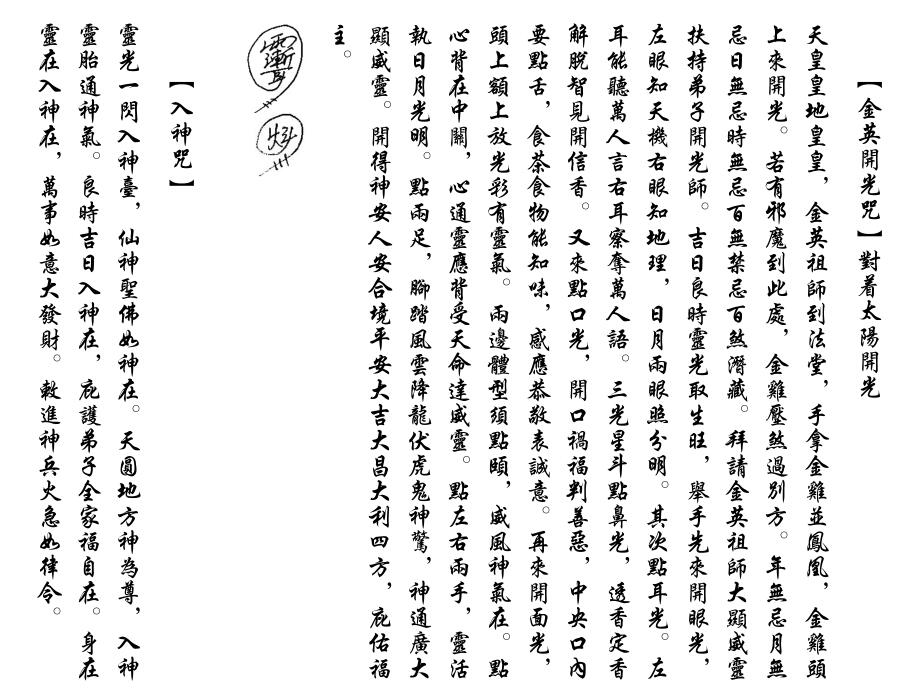 【金英開光咒】對着太陽開光
天皇皇地皇皇，金英祖師到法堂，手拿金雞並鳳凰，金雞頭
上來開光。若有邪魔到此處，金雞壓煞過別方。年無忌月無
忌日無忌時無忌百無禁忌百煞潛藏。拜請金英祖師大顯威靈
扶持弟子開光師。吉日良時靈光取生旺，舉手先來開眼光，
左眼知天機右眼知地理，日月兩眼照分明。其次點耳光。左
耳能聽萬人言右耳察奪萬人語。三光星斗點鼻光，透香定香
解脫智見開信香。又來點口光，開口禍福判善惡，中央口內
要點舌，食茶食物能知味，感應恭敬表誠意。再來開面光，
頭上額上放光彩有靈氣。兩邊體型須點頤，威風神氣在。點
心背在中關，心通靈應背受天命達威靈。點左右兩手，靈活
執日月光明。點兩足，腳踏風雲降龍伏虎鬼神驚，神通廣大
顯威靈。開得神安人安合境平安大吉大昌大利四方，庇佑福
主。
【入神咒】
靈光一閃入神臺，仙神聖佛如神在。天圓地方神為尊，入神
靈胎通神氣。良時吉日入神在，庇護弟子全家福自在。身在
靈在入神在，萬事如意大發財。敕進神兵火急如律令。